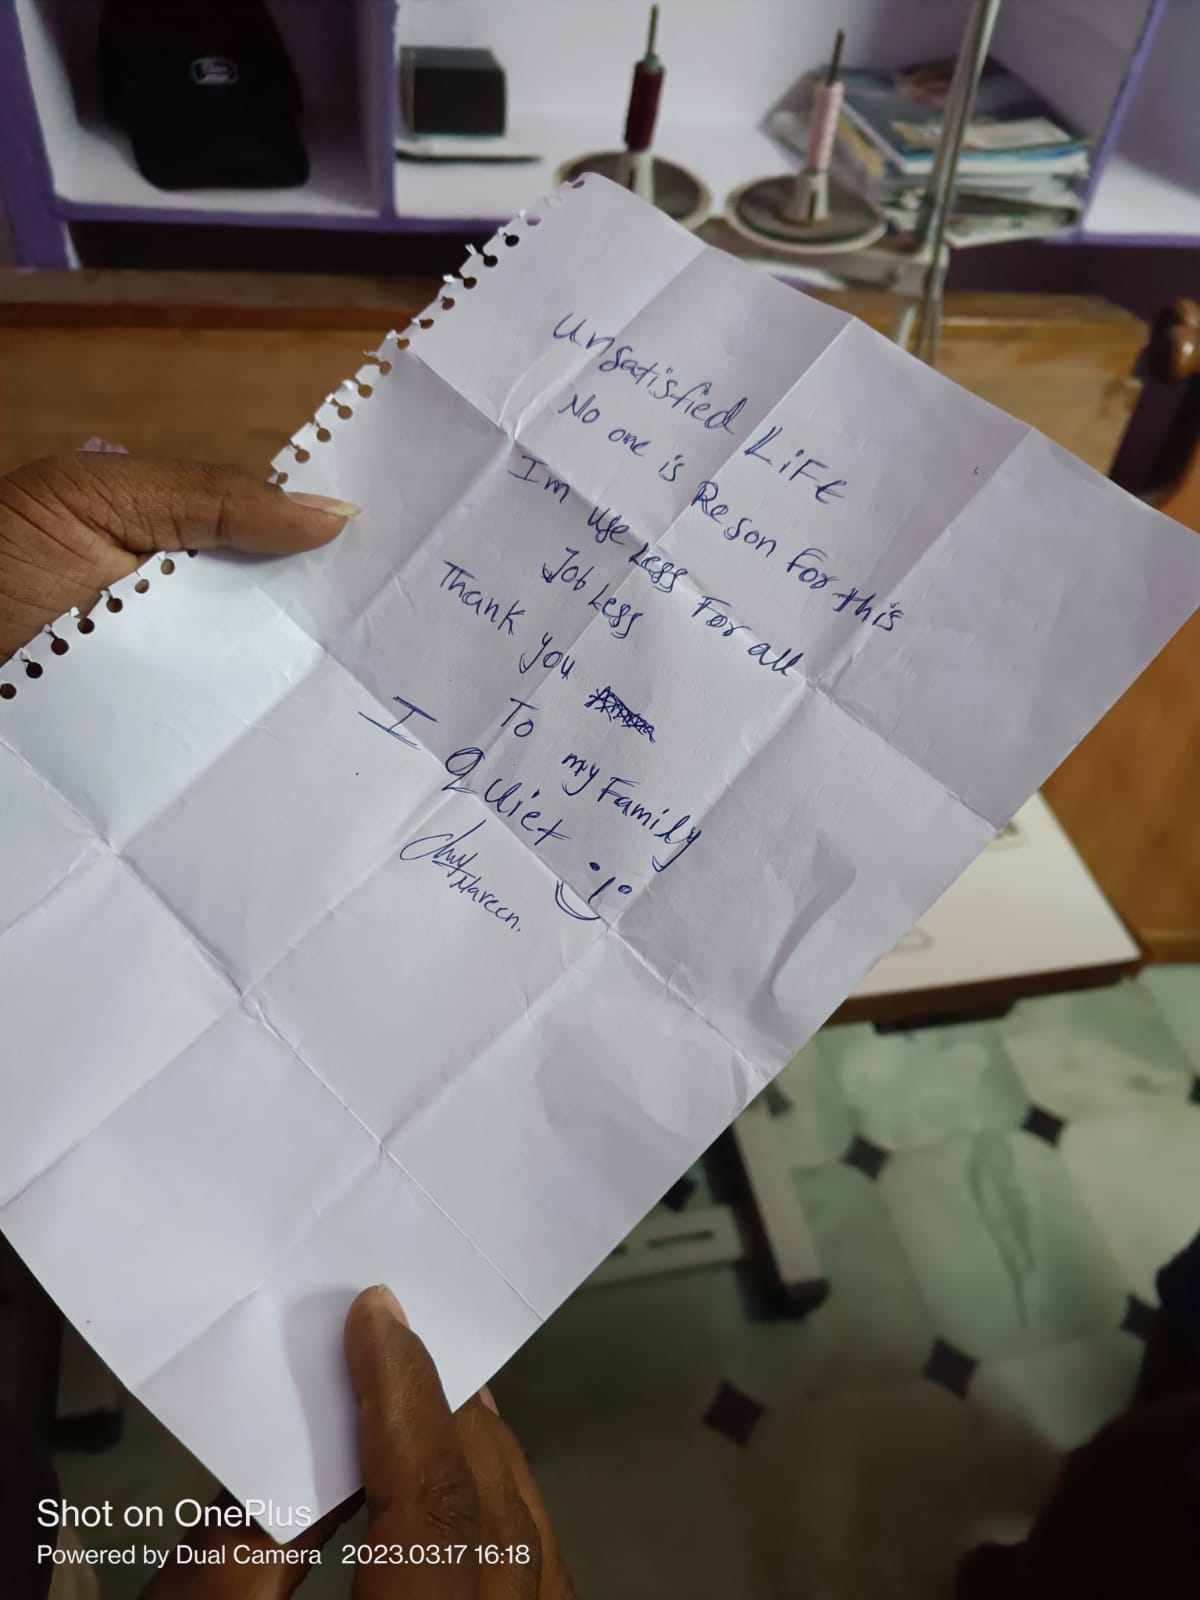 unsatisfied LiFE
No one is Reson For this
Im UseLess For all
JobLess
Thank you
To my Family
I Quiet
Naveen.
Shot on OnePlus
Powered by Dual Camera 2023.03.17 16:18